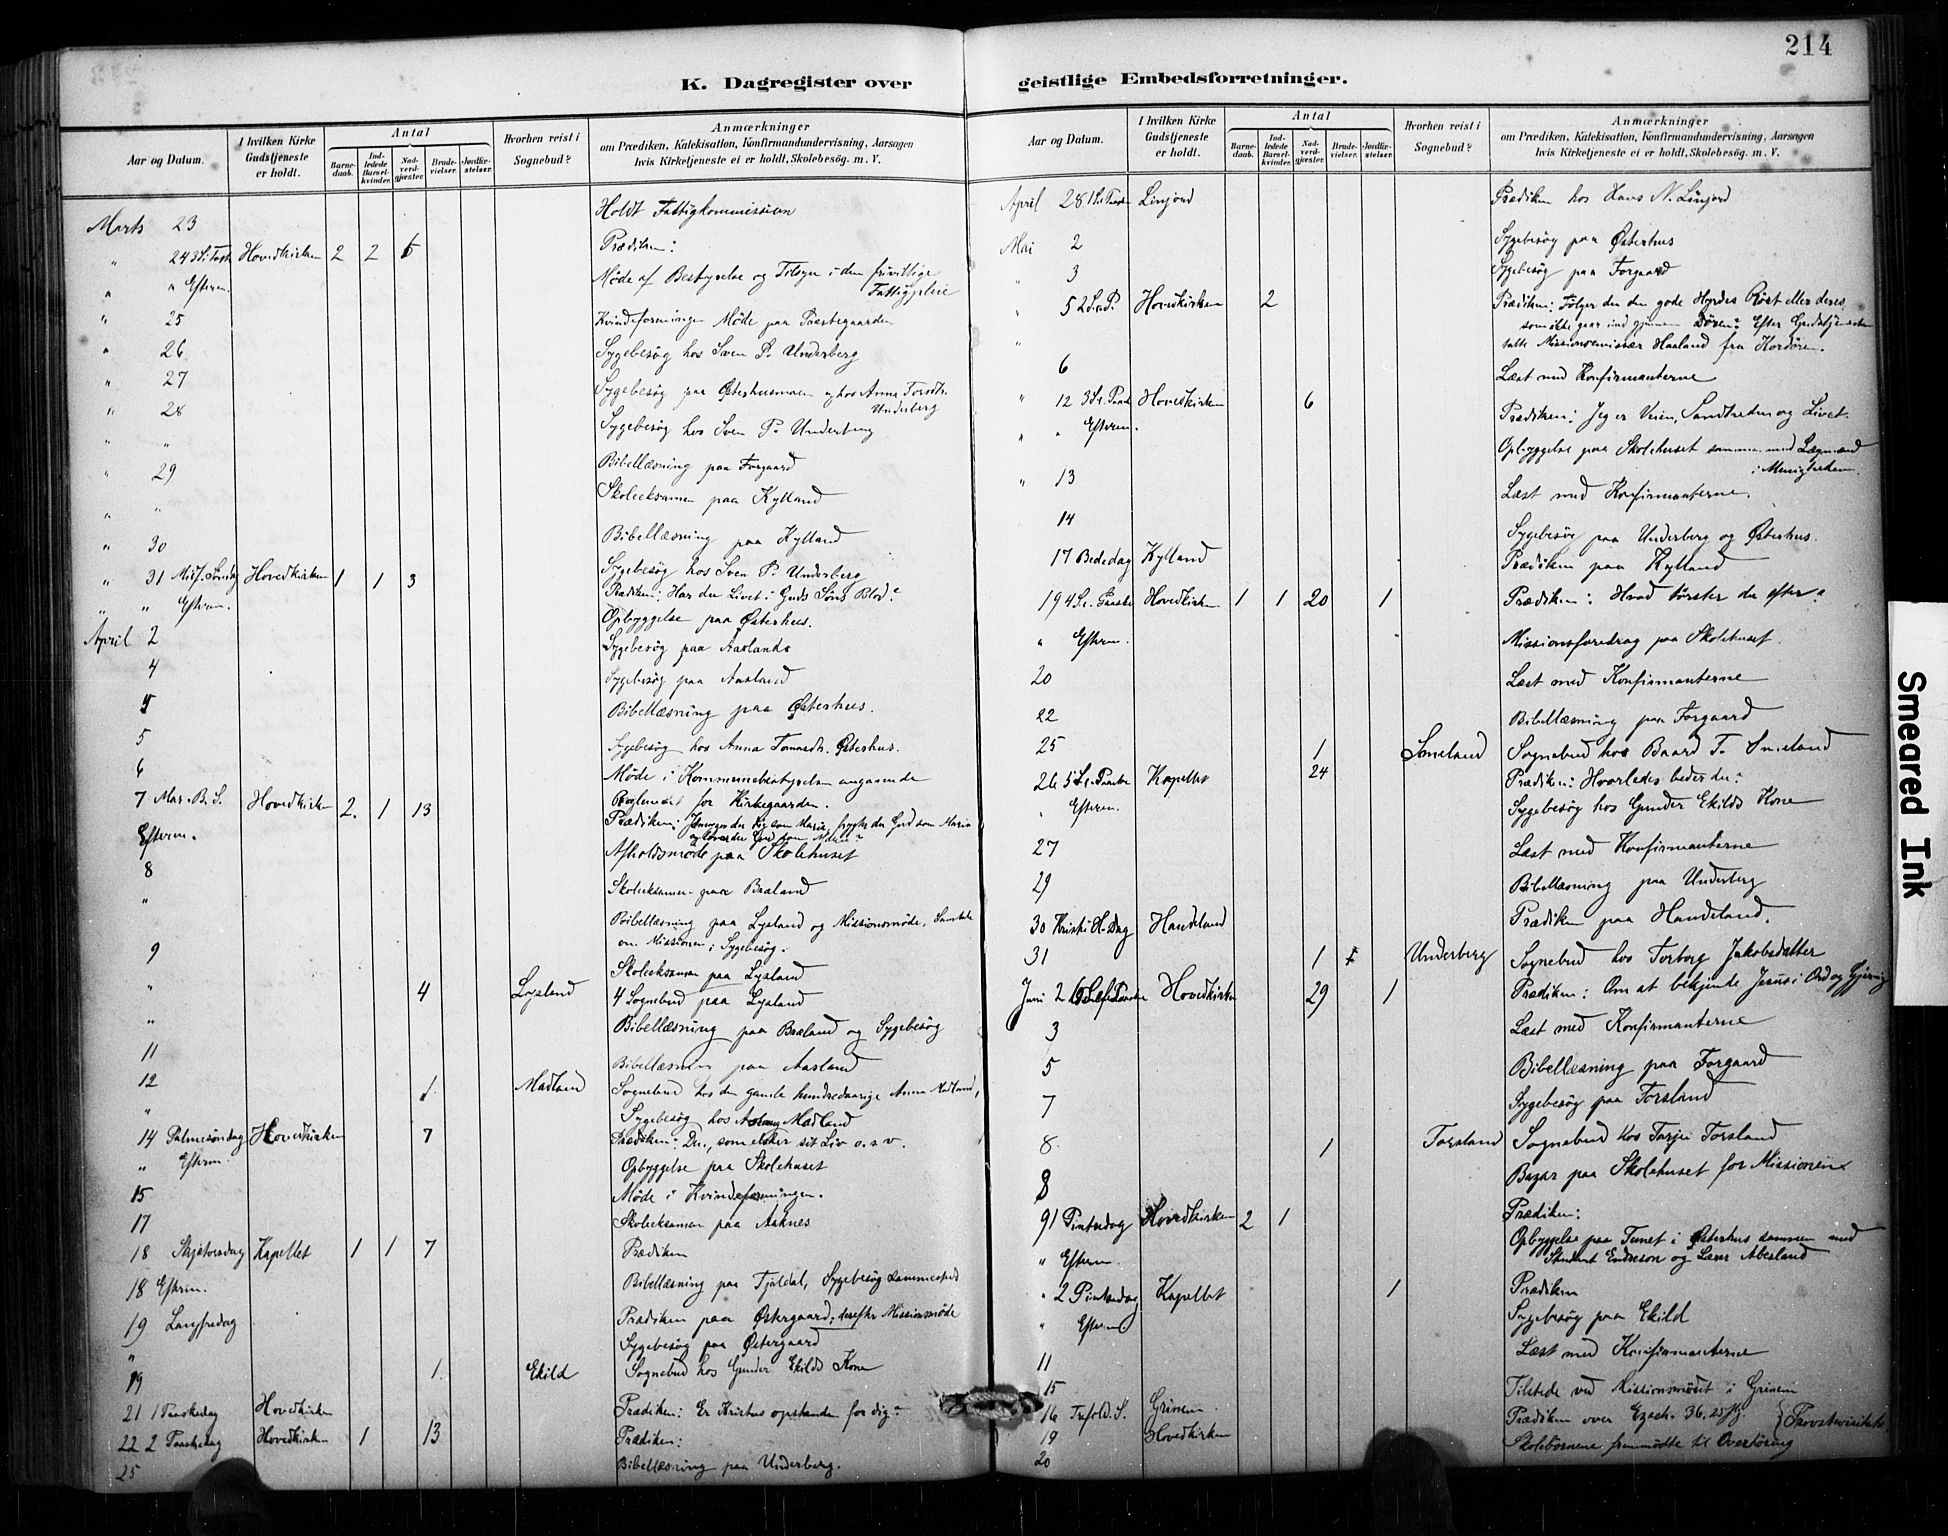 214
K. Dagregister over geistlige Embedsforretninger.
Aar og Datum.
I hvilken Kirke Gudstjeneste er holdt.
Antal
Barnedaab.
Indledede Barselkvinder.
Nadverdgjæster.
Brudevielser.
Jordfæstelser.
Hvorhen reist i Sognebud?
Anmærkninger
om Prædiken, Katekisation, Konfirmandundervisning, Aarsagen
hvis Kirketjeneste ei er holdt, Skolebesøg. m. V.
Marts 23 Holdt Fattigkommission
" 24 3 S. i Faste Hovedkirken 2 2 6 Prædiken:
" " Efterm. Møde af Bestyrelse og Tilsyn i den frivillige
Fattigpleie
" 25 Kvindeforeningen Møde paa Præstegaarden
" 26 Sygebesøg hos Sven P. Underberg
" 27 Sygebesøg paa Østerhusmoen og hos Anna
Underberg
" 28 Sygebesøg hos Sven P. Underberg
" " Bibellæsning paa Forgaard
" 29 Skoleeksamen paa Kylland
" " Bibellæsning paa Kylland
" 30 Sygebesøg hos Sven P. Underberg
" 31 Midf. Søndag Hovedkirken 1 1 3 Prædiken: Har du Livet i Guds Søns Blod?
" " Efterm. Opbyggelse paa Østerhus.
April 2 Sygebesøg paa Aaslands
4 Sygebesøg paa Aasland
Bibellæsning paa Østerhus.
5 Sygebesøg hos Anna Østerhus.
6 Møde i Kommunebestyrelsen angaaende
Reglement for Kirkegaarden.
7 Mar. B. S. Hovedkirken 2. 1 13 Prædiken: som Maria, frygter du Gud som Maria
Efterm. Afholdsmøde paa Skolehuset
8 Skoleeksamen paa Braland
" Bibellæsning paa Lysland og Missionsmøde, Samtale
om Missionen; Sygebesøg.
9 Skoleeksamen paa Lysland
" 4 Lysland 4 Sognebud paa Lysland
" Bibellæsning paa Braland og Sygebesøg
11 Bibellæsning paa Aasland
12 1 Madland Sognebud hos den gamle hundredaarige Anna Madland,
" Sygebesøg hos Madland
14 Palmesøndag Hovedkirken 7 Prædiken: Du, som elsker sit Liv o. s. v.
" Efterm. Opbyggelse paa Skolehuset
15 Møde i Kvindeforeningen.
17 Skoleeksamen paa Asknes
18 Skjærtorsdag Kapellet 1 1 7 Prædiken
18 Efterm. Bibellæsning paa Tjaldal, Sygebesøg sammesteds
19 Langfredag Prædiken paa Østergaard; derefter Missionsmøde
" Sygebesøg paa Østergaard
19 1. Ekild Sognebud hos Gunder Ekilds Kone
21 1 Paaskedag Hovedkirken Prædiken: Er Kristus opstanden for dig?
22 2 Paaskedag Hovedkirken 1 13 Prædiken:
25 Bibellæsning paa Underberg.
Aar og Datum.
I hvilken Kirke Gudstjeneste er holdt.
Antal
Barnedaab.
Indledede Barselkvinder.
Nadverdgjæster.
Brudevielser.
Jordfæstelser.
Hvorhen reist i Sognebud?
Anmærkninger
om Prædiken, Katekisation, Konfirmandundervisning, Aarsagen
hvis Kirketjeneste ei er holdt, Skolebesøg. m. V.
April 28 1 S. e. Paaske Linjord Prædiken hos Hans N. Linjord
Mai 2 Sygebesøg paa Østerhus
" 3 Sygebesøg paa Forgaard
" 5 2 S. e. P. Hovedkirken 2 Prædiken: Følger du den gode Hyrdes Røst eller deres,
som ikke gaar ind gjennem Døren? Efter Gudstjenesten
" talte Missionsemissær Haaland fra Hordøen.
6 Læst med Konfirmanterne
" 12 3 S. e. Paaske Hovedkirken 6 Prædiken: Jeg er Veien, Sandheden og Livet.
" " Efterm. Opbyggelse paa Skolehuset sammen med Lægmænd
i Menigheden.
" 13 Læst med Konfirmanterne.
14 Sygebesøg paa Underberg og Østerhus.
17 Bededag Kylland Prædiken paa Kylland
19 4 S. e. Paaske Hovedkirken 1 1 20 1 Prædiken: Hvad tørster du efter?
" Efterm. Missionsforedrag paa Skolehuset.
20 Læst med Konfirmanterne
22 Bibellæsning paa Forgaard
25 1 Smeland Sognebud hos Baard T. Smeland
26 5 S. e. Paaske Kapellet 24 Prædiken: Hvorledes beder du?
" Efterm. Sygebesøg hos Gunder Ekilds Kone
27 Læst med Konfirmanterne
29 Bibellæsning paa Underberg
30 Kristi H. Dag Handeland Prædiken paa Handeland.
31 1 Underberg Sognebud hos Torborg Jakobsdatter
Juni 2 6 S. e. Paaske Hovedkirken 29 1 Prædiken: Om at bekjende Jesus i Ord og Gjerning
3 Læst med Konfirmanterne
5 Bibellæsning paa Forgaard
7 Sygebesøg paa Torsland
8 1 Torsland Sognebud hos Tarje Torsland
8 Bazar paa Skolehuset for Missionen
9 1 Pintsedag Hovedkirken 2 1 Prædiken:
" Efterm. Opbyggelse paa Tunet i Østerhus sammen med
Student Endreson og Lærer Aberland
" 2 Pintsedag Kapellet 1 Prædiken
" Efterm. Sygebesøg paa Ekild
11 Læst med Konfirmanterne
15 Tilstede ved Missionsmødet i Grinem
16 Trefold. S. Grinem. Prædiken over Ezech. 36, 25 flg.
19 Hovedkirken Skolebørnene fremmødte til Overhøring } Provstevisitats
20
Smeared Ink